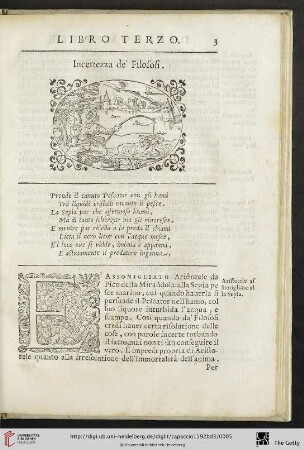 LIBRO TERZO. 3
Incertezza de' Filosofi.
Prende il tal'uto Pescator con gli hami
Trà liquidi cristalli incauto il pesce.
La Sepia par che
Ma di tanto
E mentre par ch'ella a la preda il chiami
Lieta il nero licor con l'acque mesce,
E'l loco oue si vidde, intorbida e appanna,
E astutamente il predatore inganna.
ASSOMIGLIATO Aristotele da
Pico della Mirandola alla Sepia pe
sce marino, cui quando hauer la si
persuade il Pescator nell'hamo, col
suo liquore inturbida l'acqua, e
scampa. Così quando da' Filosofi
credi hauer certa risolutione delle
cose, con parole incerte turbando
il fatto, mai non ti fan conseguire il
vero. Fù impresa propria di Aristo-
tele quanto alla irresolutione dell'Immortalità dell'anima.
Per
Aristotele as
somigliato al
la Sepia.
UNIVERSITÄTS-
BIBLIOTHEK
HEIDELBERG
http://digi.ub.uni-heidelberg.de/diglit/capaccio1592bd3/0005
© Universitätsbibliothek Heidelberg
The Getty